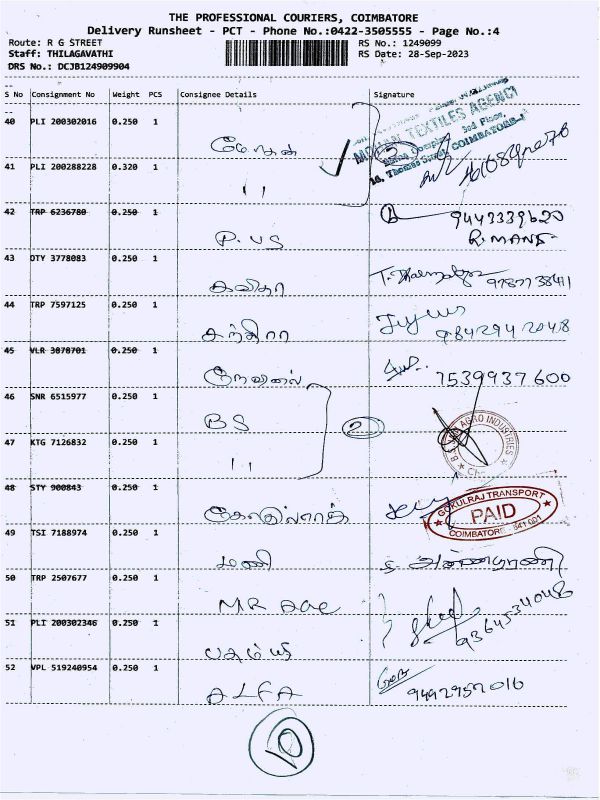 THE PROFESSIONAL COURIERS, COIMBATORE
Delivery Runsheet - PCT - Phone No.:0422-3505555 - Page No.:4
Route: R G STREET
RS No.: 1249099
Staff: THILAGAVATHI
RS Date: 28-Sep-2023
DRS No.: DCJB124909904
S No Consignment No Weight PCS Consignee Details Signature
40 PLI 200302016 0.250 1
MOHAN TEXTILES AGENCY
COIMBATORE-1
41 PLI 200288228 0.320 1 11
42 TRP 6236780 0.250 1 P.US 9443339620
R.MANI
43 OTY 3778083 0.250 1 கவிதா 9787738411
44 TRP 7597125 0.250 1 சுந்திரா 9842942048
45 VLR 3878701 0.250 1 7539937600
46 SNR 6515977 0.250 1 BS 2
47 KTG 7126832 0.250 1 11
AGRO INDUSTRIES
48 STY 900843 0.250 1
GOKULRAJ TRANSPORT
PAID
COIMBATORE - 641 001
49 TSI 7188974 0.250 1 மணி
50 TRP 2507677 0.250 1 MR
51 PLI 200302346 0.250 1 9364534048
52 VPL 519240954 0.250 1 ALFA 9492952016